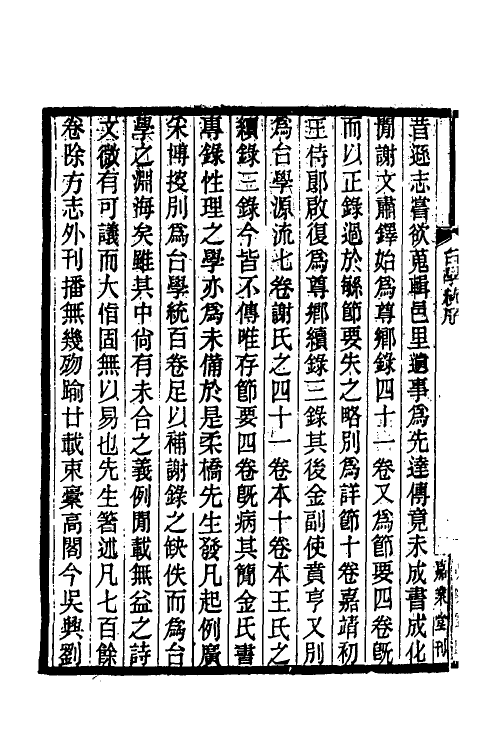 昔遜志嘗欲蒐輯邑里遺事爲先達傳竟未成書成化
閒謝文肅鐸始爲尊鄉錄四十一卷又爲節要四卷旣
而以正錄過於緐節要失之略別爲詳節十卷嘉靖初
王侍郞啟復爲尊鄉續錄三錄其後金副使賁亨又別
爲台學源流七卷謝氏之四十一卷本十卷本王氏之
續錄三錄今皆不傳唯存節要四卷旣病其簡金氏書
專錄性理之學亦爲未備於是柔橋先生發凡起例廣
宋博㨨別爲台學統百卷足以補謝錄之缺佚而爲台
學之淵海矣雖其中尙有未合之義例閒載無益之詩
文微有可議而大恉固無以易也先生箸述凡七百餘
卷除方志外刊播無幾歾踰廿載束稾高閣今吳興劉
台學統序
嘉業堂刊